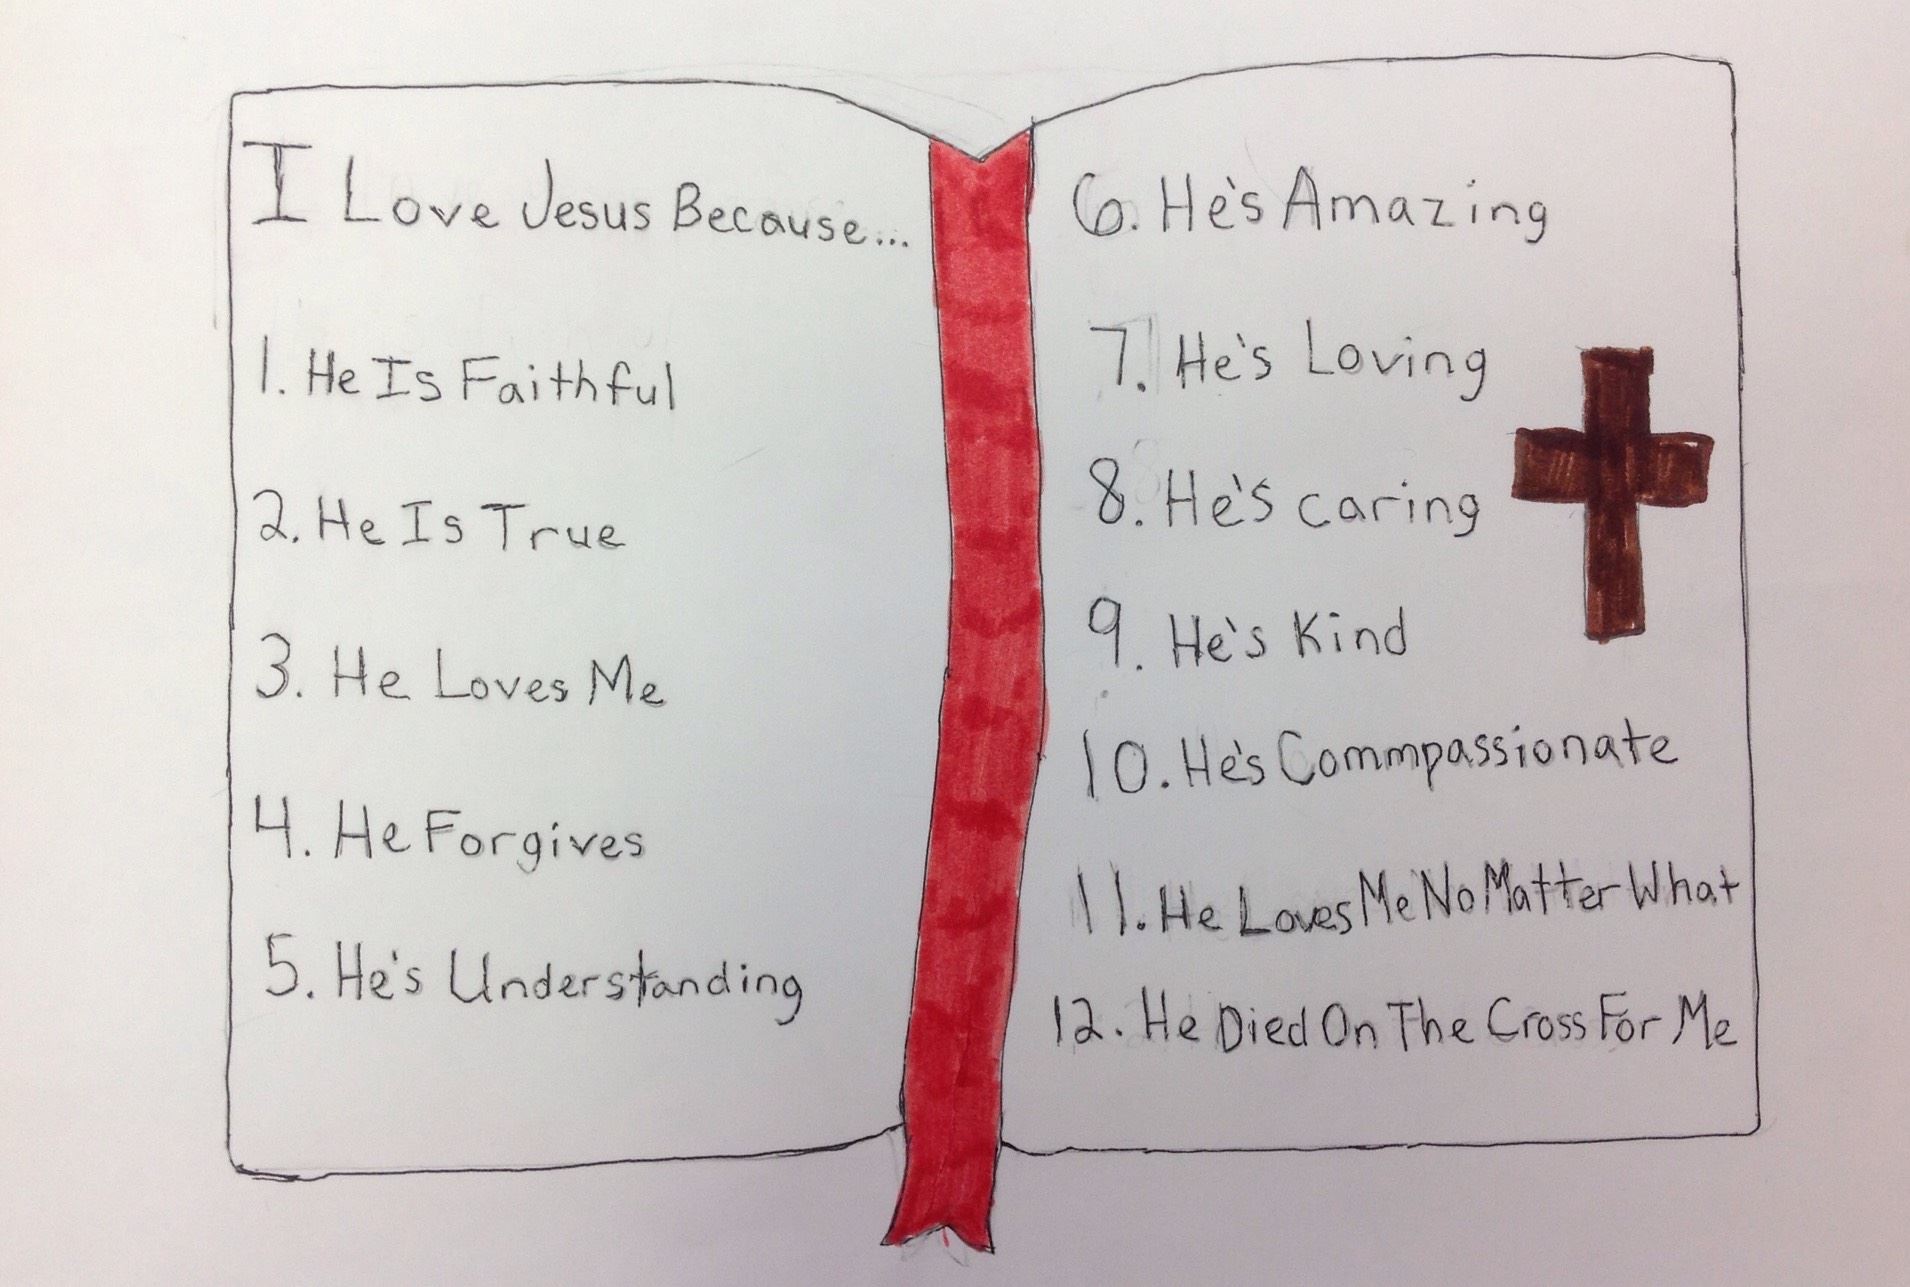 I Love Jesus Because...
1. He Is Faithful
2. He Is True
3. He Loves Me
4. He Forgives
5. He's Understanding
6. He's Amazing
7. He's Loving
8. He's caring
9. He's Kind
10. He's Commpassionate
11. He Loves Me No Matter What
12. He Died On The Cross For Me